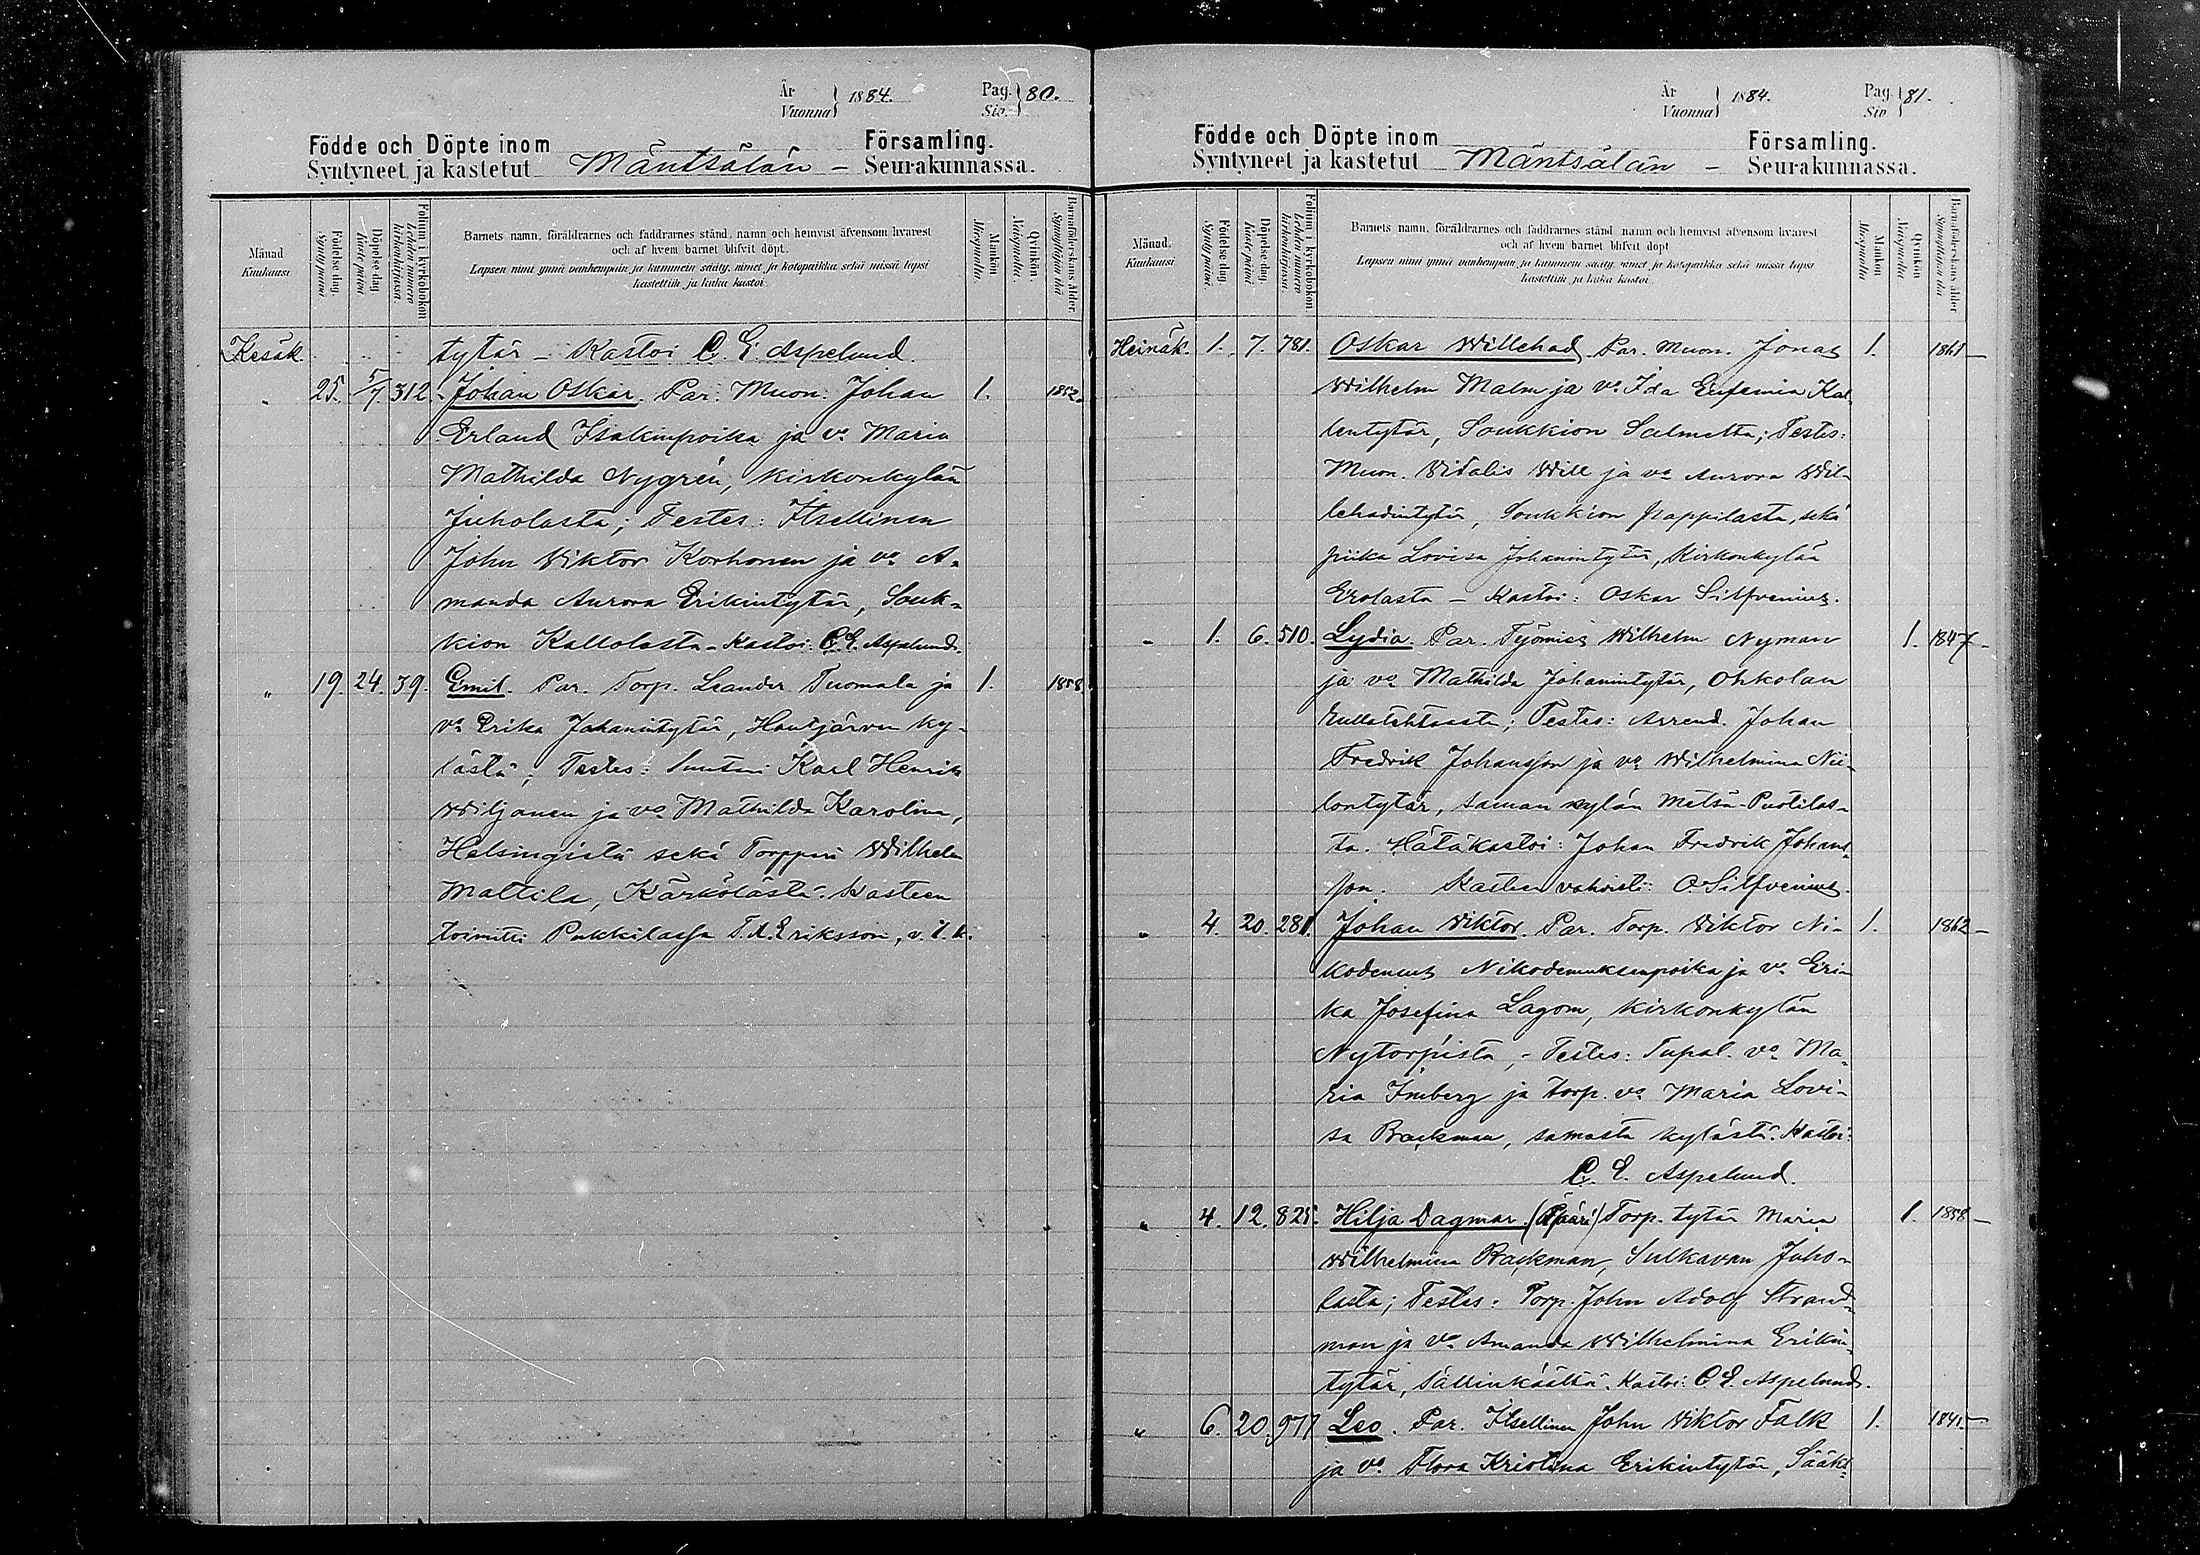 År Vuonna} 1884. Pag. Siv.} 80.
Födde och Döpte inom Församling.
Syntyneet ja kastetut Mäntsälän – Seurakunnassa.
Månad Kuukausi
Födelse-dag. Syntypäivä
Döpelse-dag. Kaste päivä
Folium i kyrkoboken. Lehden numero kirkonkirjassa.
Barnets namn, föräldrarnes och faddrarnes stånd, namn och hemvist äfvensom hvarest
och af hvem barnet blifvit döpt.
Lapsen nimi ynnä vanhempain ja kummein sääty, nimet ja kotopaikka sekä missä lapsi
kastettiin ja kuka kastoi.
Mankön Miespuolta.
Qvinkön. Naispuolta.
Barnaföderskans ålder. Synnyttäjän ikä
Kesäk. tytär – Kastoi C. E. Aspelund.
" 25. 5/7 312. Johan Oskar. Par. Muon. Johan 1. 1852.
Erland Isakinpoika ja vo Maria
Mathilda Nygrén, Kirkonkylän
Juholasta; Testes: Itsellinen
John Viktor Korhonen ja vo A-
manda Aurora Erikintytär, Souk-
kion Kallolasta – Kastoi: C. E. Aspelund.
" 19. 24. 39. Emil. Par. Torp. Leander Tuomala ja 1. 1858
vo Erika Johanintytär, Hautjärven ky-
lästä; Testes: Suutari Karl Henrik
Wiljanen ja vo Mathilda Karolina,
Helsingistä sekä Torppari Wilhelm
Mattila, Kärkölästä. Kasteen
toimitti Pukkilassa T. A. Eriksson, v. t. k.
År Vuonna} 1884. Pag. Siv} 81.
Födde och Döpte inom Församling.
Syntyneet ja kastetut Mäntsälän – Seurakunnassa.
Månad. Kuukausi
Födelse-dag. Syntypäivä.
Döpelse-dag. Kaste päivä
Folium i kyrkoboken. Lehden numero kirkonkirjassa.
Barnets namn, föräldrarnes och faddrarnes stånd, namn och hemvist äfvensom hvarest
och af hvem barnet blifvit döpt.
Lapsen nimi ynnä vanhempain ja kummein sääty, nimet ja kotopaikka sekä missä lapsi
kastettiin ja kuka kastoi.
Mankön Miespuolta
Qvinkön Naispuolta
Barnaföderskans ålder Synnyttäjän ikä
Heinäk. 1. 7. 781. Oskar Willehad Par. Muon. Jonas 1. 1861
Wilhelm Malm ja vo Ida Eufemia Kal-
lentytär, Soukkion Salmetta; Testes:
Muon. Vitalis Will ja vo Aurora Wil-
lehadintytär, Soukkion Pappilasta, sekä
piika Lovisa Johanintytär, Kirkonkylän
Erolasta – Kastoi: Oskar Silfvenius.
" 1. 6. 510. Lydia. Par. Työmies Wilhelm Nyman 1. 1847
ja vo Mathilda Johanintytär, Ohkolan
Kullatehtaasta; Testes: Arrend. Johan
Fredrik Johansson ja vo Wilhelmina Nii-
lontytär, saman kylän Metsä-Puotilas-
ta. Hätäkastoi: Johan Fredrik Johans-
son. Kasteen vahvisti: O. Silfvenius.
" 4. 20. 281. Johan Viktor. Par. Torp. Viktor Ni- 1. 1862
kodemus Nikodemuksenpoika ja vo Eri-
ka Josefina Lagom, Kirkonkylän
Nytorpista, – Testes: Tupal. vo Ma-
ria Imberg ja torp. vo Maria Lovi-
sa Backman, samasta kylästä. Kastoi:
C. E. Aspelund.
" 4. 12. 825. Hilja Dagmar (Äpärä) Torp. tytär Maria 1. 1858
Wilhelmina Backman, Sulkavan Juho-
lasta; Testes: Torp. John Adolf Strand-
man ja vo Amanda Wilhelmina Erikin-
tytär, Sällinkäältä. Kastoi: C. E. Aspelund.
" 6. 20. 977 Leo. Par. Itsellinen John Viktor Falk 1. 1841
ja vo Flora Kristina Erikintytär, Sääks-